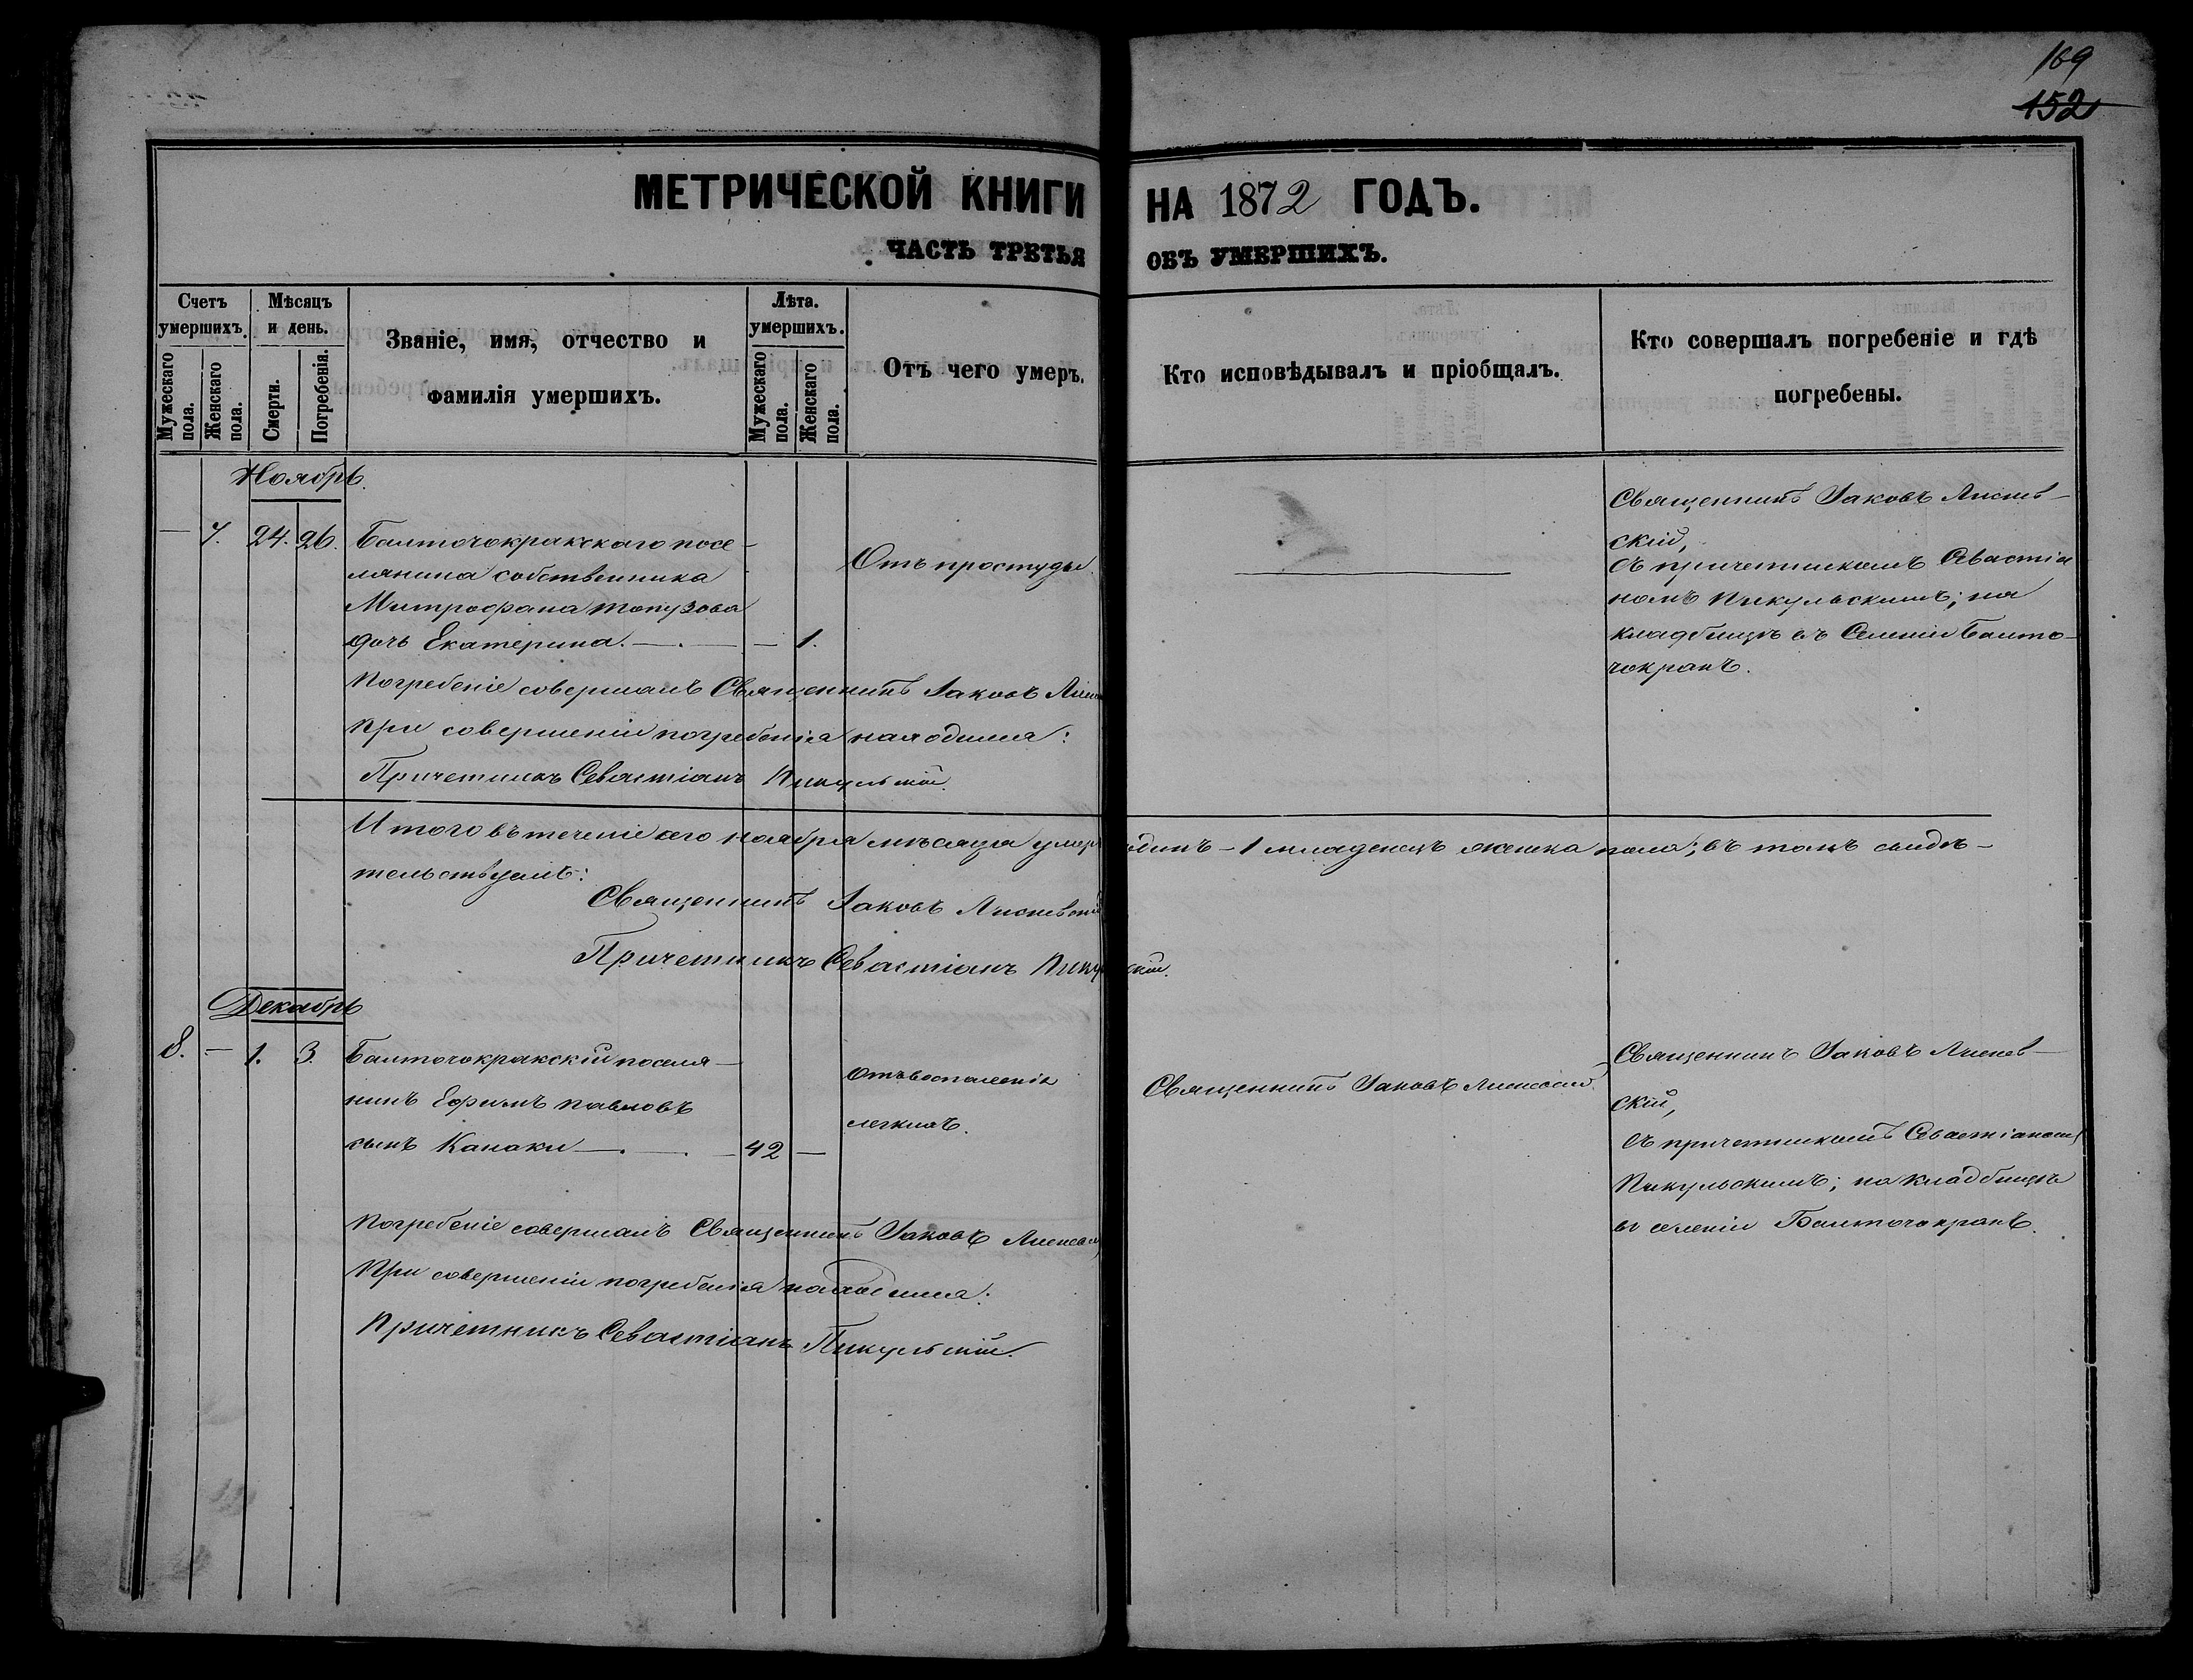 169
152
МЕТРИЧЕСКОЙ КНИГИ НА 1872 ГОДЪ.
ЧАСТЬ ТРЕТЬЯ ОБЪ УМЕРШИХЪ.
Счетъ умершихъ.
Мужескаго пола.
Женскаго пола.
Мѣсяцъ и день.
Смерти.
Погребенія.
Званіе, имя, отчество и
фамилія умершихъ.
Лѣта. умершихъ.
Мужескаго пола.
Женскаго пола.
Отъ чего умеръ.
Кто исповѣдывалъ и пріобщалъ.
Кто совершалъ погребеніе и гдѣ
погребены.
Ноябрь.
— 7. 24. 26.
Балточокракскаго посе-
лянина собственника
Митрофана Топузова
дочь Екатерина. — . — — 1.
Отъ простуды.
Священникъ Іаковъ Лиснев-
скій,
съ причетникомъ Севастіа
номъ Пикульскимъ; на
кладбищѣ въ Селеніи Балто-
чокракъ.
Погребеніе совершалъ Священникъ Іаковъ
При совершеніи погребенія находился:
Причетникъ Севастіанъ Пикульскій.
Итого въ теченіе сего ноября мѣсяца умер одинъ — 1 младенецъ женска пола; въ томъ свидѣ-
тельствуемъ:
Священникъ Іаковъ Лисневскій
Причетникъ Севастіанъ Пикульскій.
Декабрь
8. — 1. 3.
Балточокракскій поселя-
нинъ Ефимъ Павловъ
сынъ Канаки — . — . — 42 —
Отъ воспаленія
легкихъ.
Священникъ Іаковъ Лисневскій.
Священникъ Іаковъ Лиснев-
скій,
Съ причетникомъ Севастіаномъ
Пикульскимъ; на кладбищѣ
въ селеніи Балточокракъ.
Погребеніе совершалъ Священникъ Іаковъ
При совершеніи погребенія находился:
Причетникъ Севастіанъ Пикульскій.